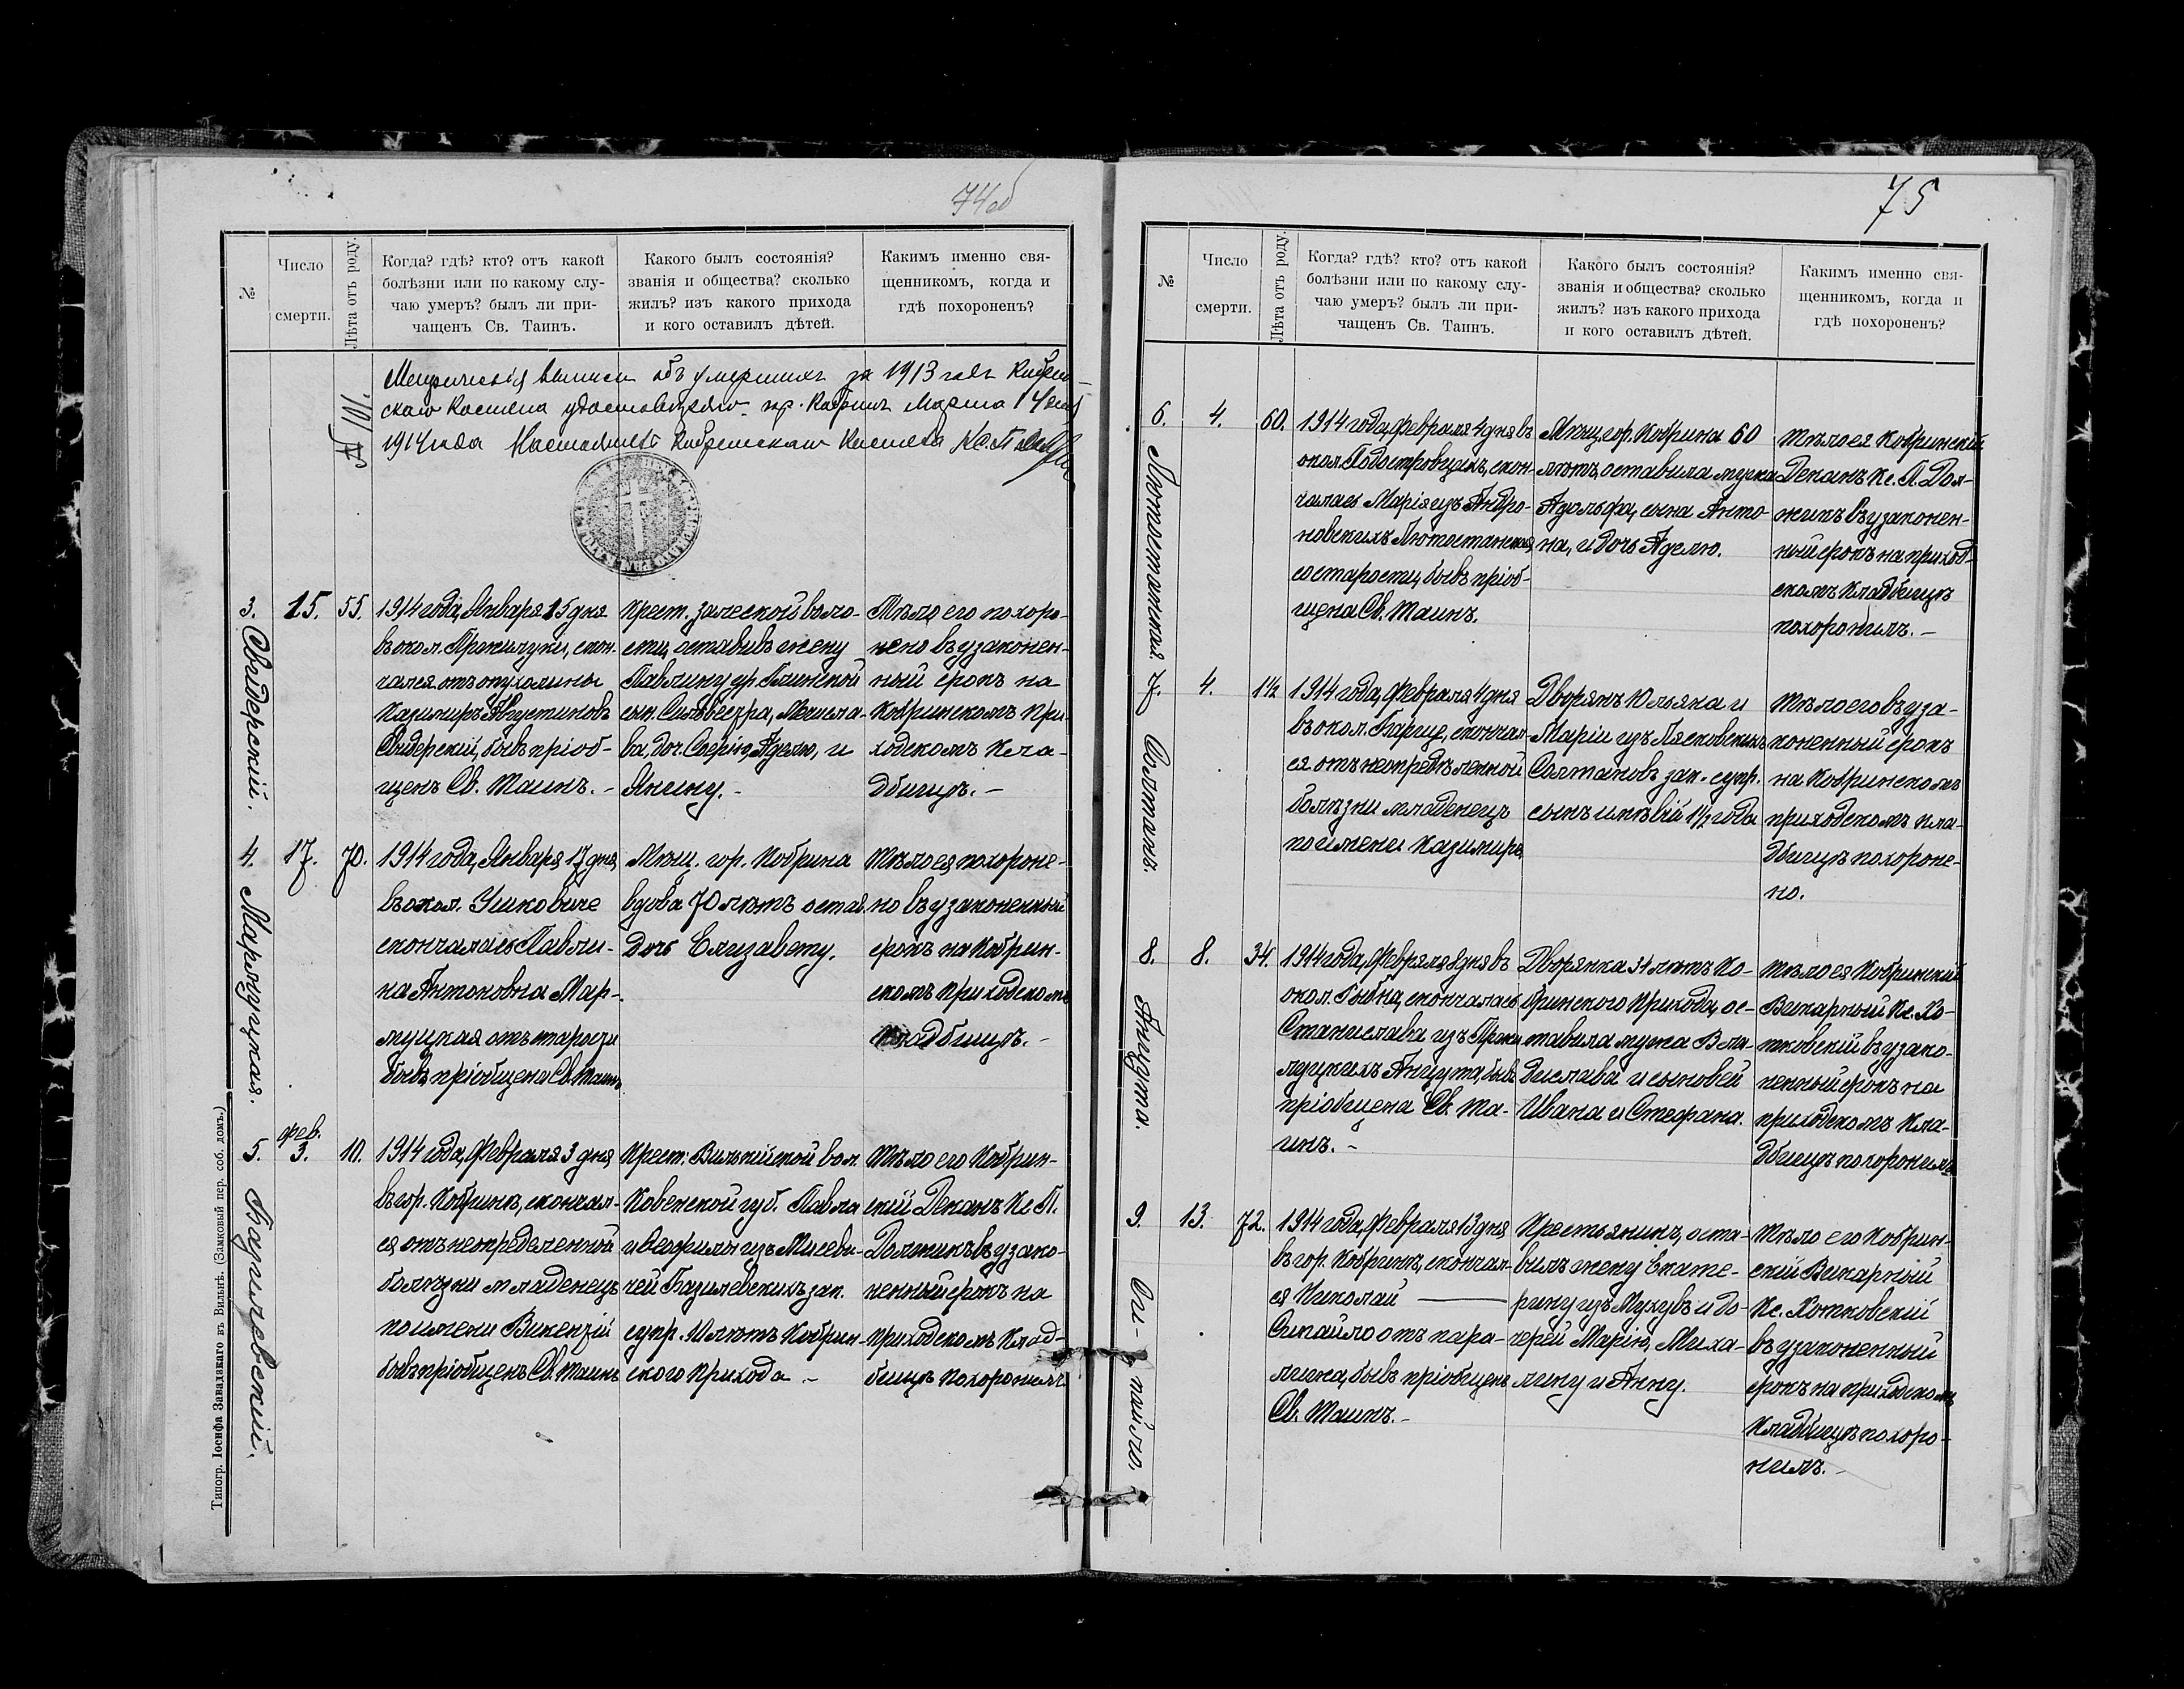 74об
№
Число
смерти.
Лѣта отъ роду.
Когда? гдѣ? кто? отъ какой
болѣзни или по какому слу-
чаю умеръ? былъ ли при-
чащенъ Св. Таинъ.
Какого былъ состоянія?
званія и общества? сколько
жилъ? изъ какого прихода
и кого оставилъ дѣтей.
Какимъ именно свя-
щенникомъ, когда и
гдѣ похороненъ?
объ умершихъ за 1913 годъ
скаго Костела гор. Кобринъ Марта
1914 года Кобринскаго Костела Кс.
3.
Свидерскій.
15.
55.
1914 года, Января 15 дня
въ окол. Прокилуки, скон-
чался отъ опухолины
Казимиръ Августиновъ
Свидерскій, бывъ пріоб-
щенъ Св. Таинъ. -
Крест. залеской воло-
сти, оставивъ жену
Павлину ур. Глинской
сын. Сильвестра,
ва, доч. Софію, Аделю, и
Янину. -
Тѣло его похоро-
нено въ узаконен-
ный срокъ на
Кобринскомъ При-
ходскомъ Кла-
дбищѣ. -
4.
17.
70.
1914 года, Января 17 дня,
въ окол. Ушковице
скончалась Павли-
на Антоновна Мар-
муцкая отъ старости
бывъ пріобщена Св. Таинъ
Мѣщ. гор. Кобрина
вдова 70 лѣтъ остав.
дочь Елизавету.
Тѣло ея похороне-
но въ узаконенный
срокъ на Кобрин-
скомъ приходскомъ
Кладбищѣ. -
фев.
5.
Базилевскій.
3.
10.
1914 года, Февраля 3 дня,
въ гор. Кобринѣ, скончал-
ся отъ неопределенной
болѣзни младенецъ
по имени Викентій
бывъ пріобщенъ Св. Таинъ
Крест. Вилькійской вол.
Ковенской губ. Павла
и Ѳеофилы изъ Мисеви-
чей Базилевскихъ зак.
супр. лѣтъ Кобрин-
ского Прихода -
Тѣло его Кобрин-
скій Деканъ Кс. П.
Должикъ въ узако-
ненный срокъ на
приходскомъ Клад-
бищѣ похоронилъ
Типогр. Іосифа Завадзкаго въ Вильнѣ. (Замковый пер. соб. домъ.)
75
№
Число
смерти.
Лѣта отъ роду.
Когда? гдѣ? кто? отъ какой
болѣзни или по какому слу-
чаю умеръ? былъ ли при-
чащенъ Св. Таинъ.
Какого былъ состоянія?
званія и общества? сколько
жилъ? изъ какого прихода
и кого оставилъ дѣтей.
Какимъ именно свя-
щенникомъ, когда и
гдѣ похороненъ?
6.
4.
60.
1914 года, Февраля 4 дня въ
окол. Подостровцахъ, скон-
чалась Марія изъ Андро-
новскихъ Лютостанская,
со старости, бывъ пріоб-
щена Св. Таинъ.
Мѣщ. гор. Кобрина 60
лѣтъ, оставила мужа
Адольфа, сына Анто-
на, и дочь Аделю.
Тѣло ея Кобринскій
Деканъ Кс. П. Дол-
жикъ въ узаконен-
ный срокъ на приход-
скомъ Кладбищѣ
похоронилъ. -
7.
Солтанъ.
4.
1½
1914 года, Февраля 4 дня
въ окол. Барще, скончал-
ся отъ неопредѣленной
болѣзни младенецъ
по имени Казимиръ
Дворянъ Юльяна и
Маріи изъ Пясковскихъ
Солтановъ зак. супр.
сынъ имѣвій 1½ года
Тѣло его въ уза-
коненный срокъ
на Кобринскомъ
приходскомъ кла-
дбищѣ похороне-
но.
8.
Анцута.
8.
34.
1914 года, Февраля 8 дня въ
окол. Гыбна, скончалась
Станислава изъ
луцкихъ Анцута, бывъ
пріобщена Св. Та-
инъ. -
Дворянка 34 лѣтъ Ко-
бринского Прихода, ос-
тавила мужа Вла-
дислава и сыновей
Ивана и Стефана.
Тѣло ея Кобринскій
Викарный Кс. Хо-
тковскій въ узако-
ненный срокъ на
приходскомъ Кла-
дбищѣ похоронилъ
9.
13.
72.
1914 года, Февраля 13 дня
въ гор. Кобринѣ, скончал-
ся Николай
Сипайло отъ пара-
лижа, бывъ пріобщенъ
Св. Таинъ. -
Крестьянинъ, оста-
вилъ жену Екате-
рину изъ Мухувъ и до-
черей Марію, Миха-
лину и Анну.
Тѣло его Кобрин-
скій Викарный
Кс. Хотковскій
въ узаконенный
срокъ на приходскомъ
Кладбищѣ похоро-
нилъ. -